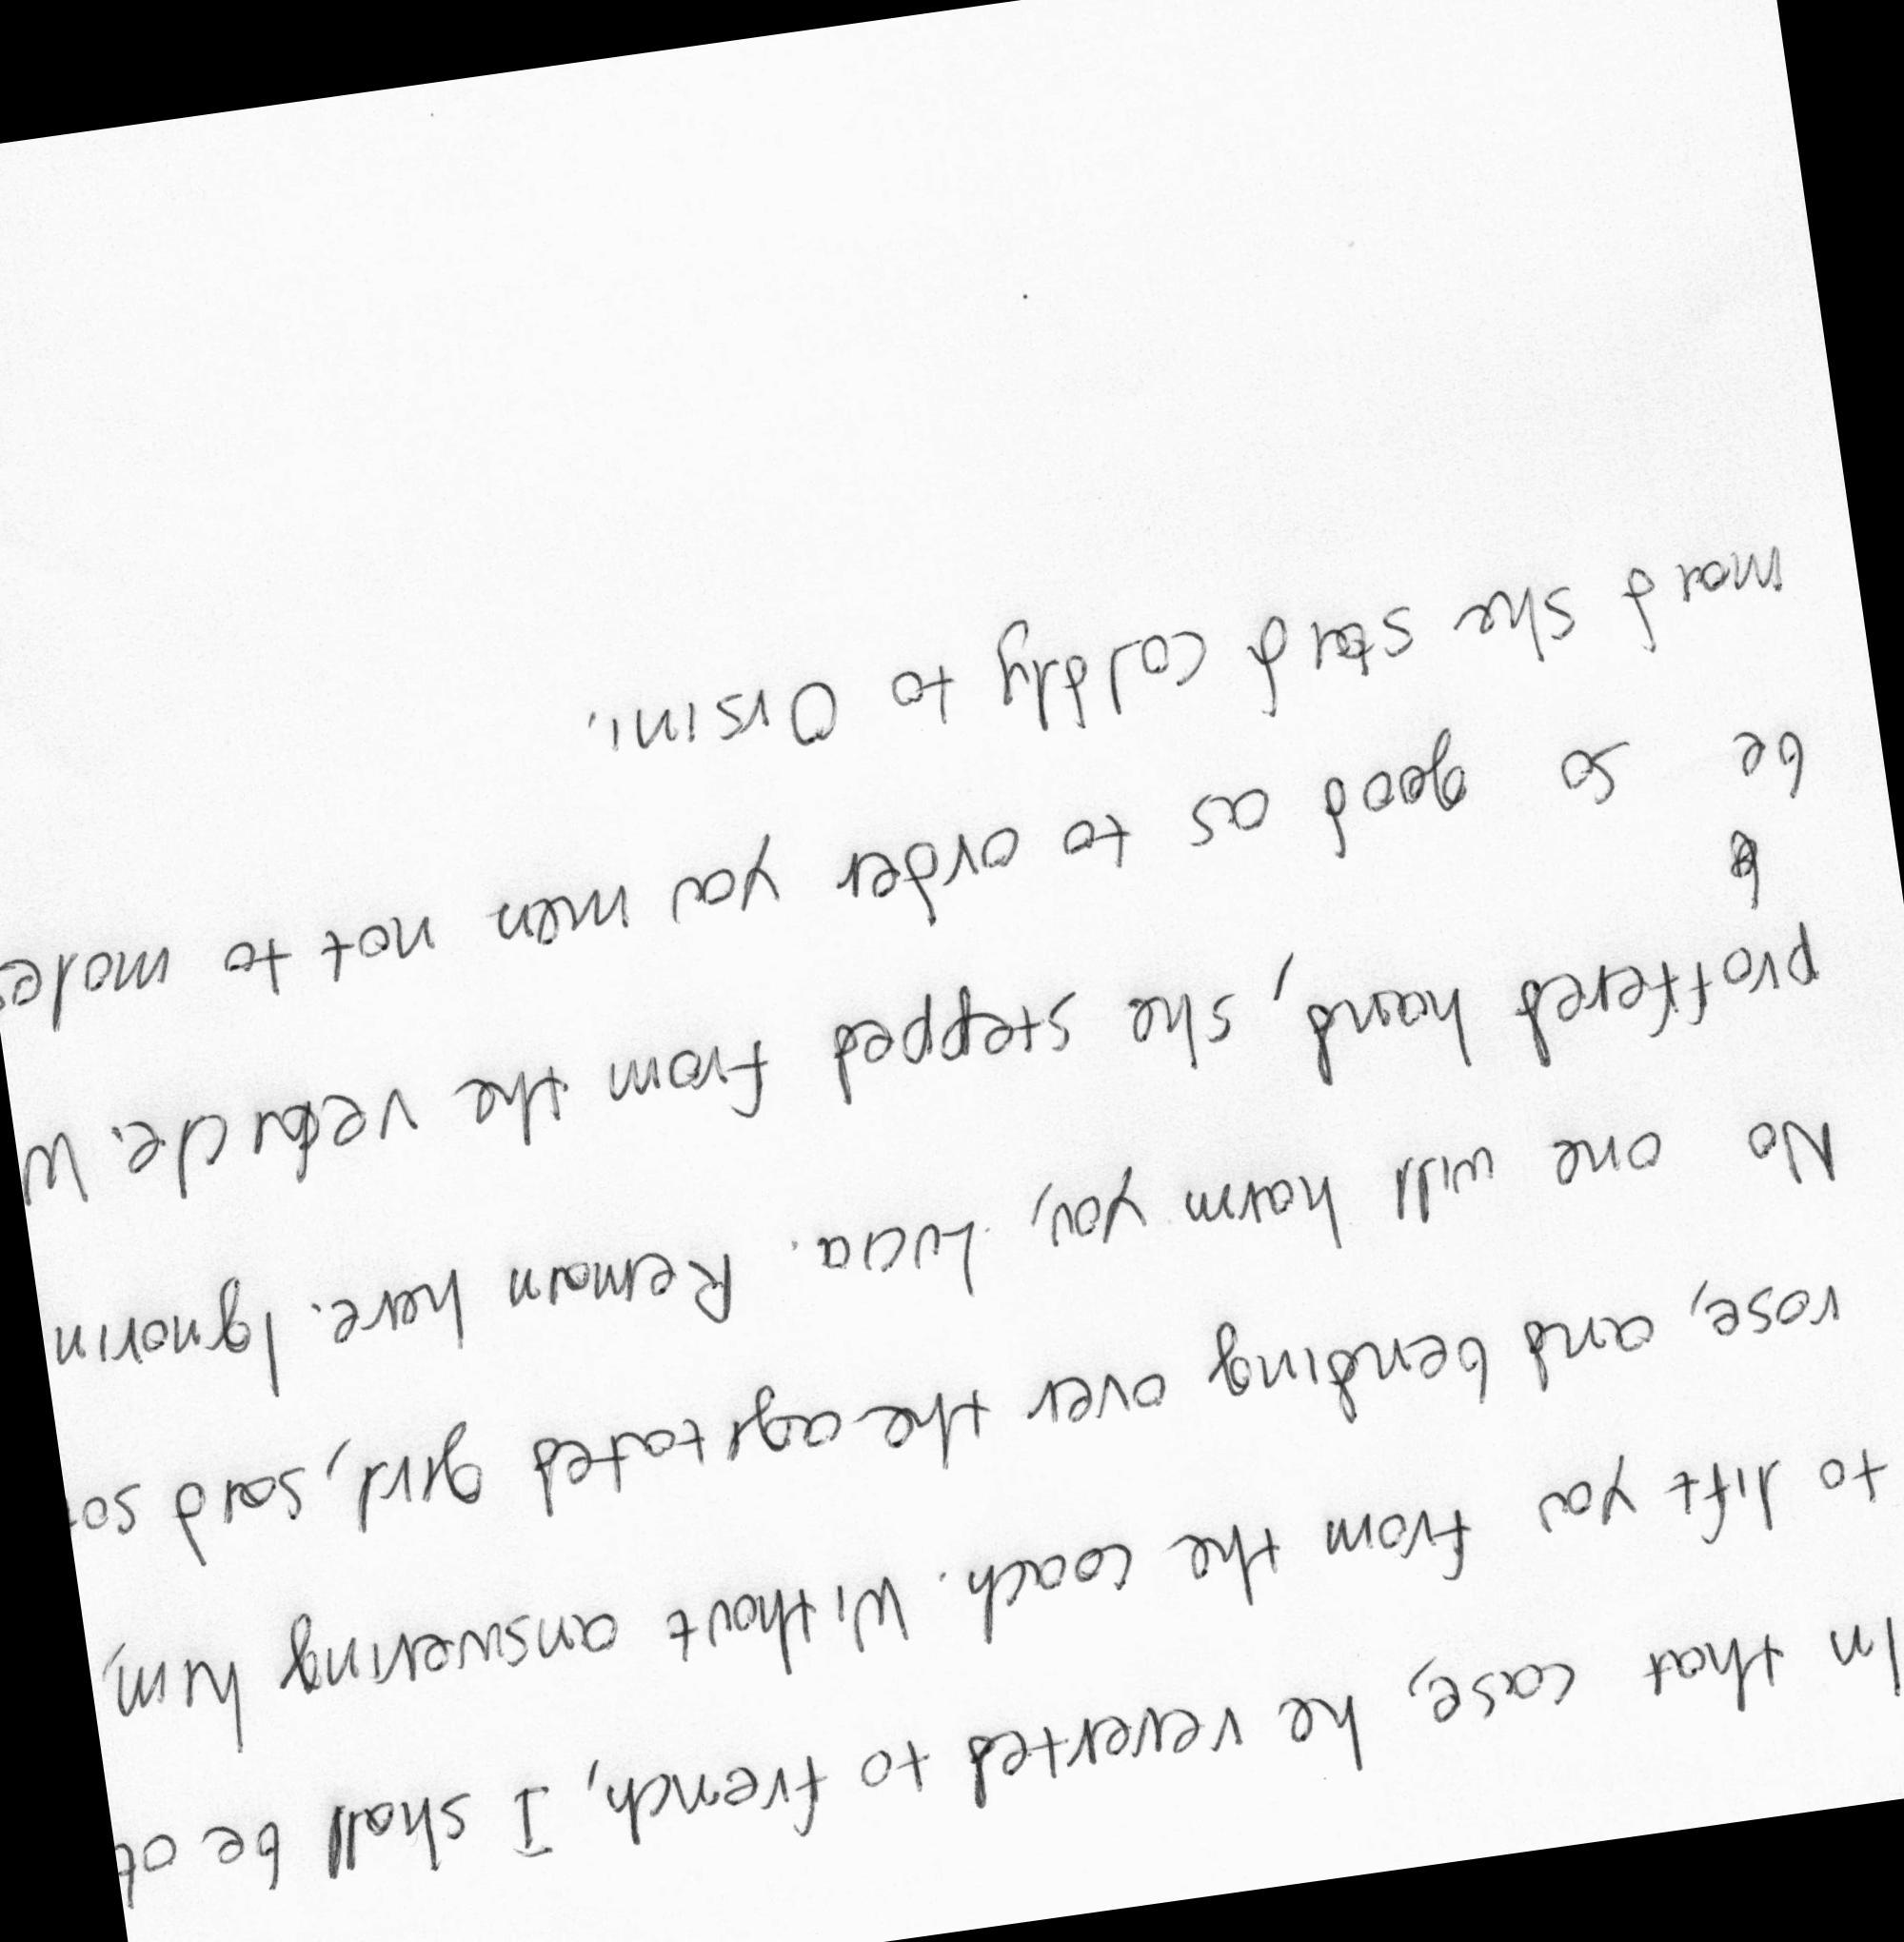 In that case, he reverted to french, I shall be ob
to lift you from the coach. Without answering him,
rose, and bending over the agitated girl, said so
No one will harm you, Lucia. Remain here. Ignorin
proffered hand, she stepped from the vehicle. W
be so good as to order you men not to moles
maid she said coldly to Orsini.